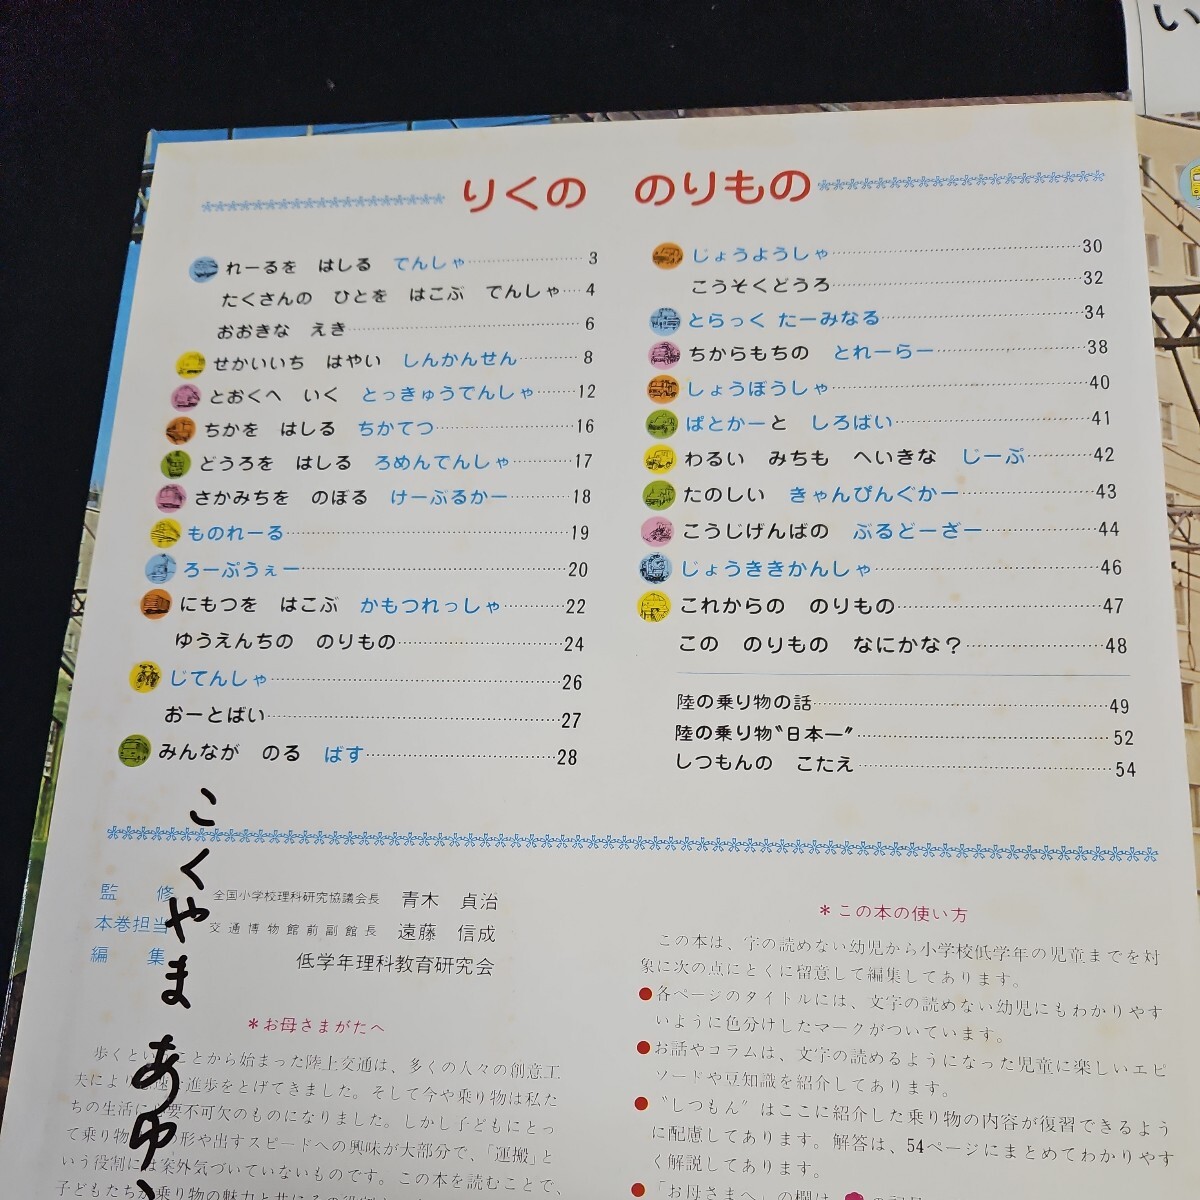 い
りくの のりもの
れーるを はしる でんしゃ 3
たくさんの ひとを はこぶ でんしゃ 4
おおきな えき 6
せかいいち はやい しんかんせん 8
とおくへ いく とっきゅうでんしゃ 12
ちかを はしる ちかてつ 16
どうろを はしる ろめんでんしゃ 17
さかみちを のぼる けーぶるかー 18
ものれーる 19
ろーぷうぇー 20
にもつを はこぶ かもつれっしゃ 22
ゆうえんちの のりもの 24
じてんしゃ 26
おーとばい 27
みんなが のる ばす 28
じょうようしゃ 30
こうそくどうろ 32
とらっく たーみなる 34
ちからもちの とれーらー 38
しょうぼうしゃ 40
ぱとかーと しろばい 41
わるい みちも へいきな じーぷ 42
たのしい きゃんぴんぐかー 43
こうじげんばの ぶるどーざー 44
じょうききかんしゃ 46
これからの のりもの 47
この のりもの なにかな? 48
陸の乗り物の話 49
陸の乗り物〝日本一〟 52
しつもんの こたえ 54
こくやま あゆ
監修 全国小学校理科研究協議会長 青木 貞治
本巻担当 交通博物館前副館長 遠藤 信成
編集 低学年理科教育研究会
*お母さまがたへ
歩くということから始まった陸上交通は、多くの人々の創意工
夫により 速 進歩をとげてきました。そして今や乗り物は私た
ちの生活に必要不可欠のものになりました。しかし子どもにとっ
て乗り物 の形や出すスピードへの興味が大部分で、「運搬」と
いう役割には案外気づいていないものです。この本を読むことで、
子どもたちが乗り物の魅力と共にその役割
*この本の使い方
この本は、字の読めない幼児から小学校低学年の児童までを対
象に次の点にとくに留意して編集してあります。
●各ページのタイトルには、文字の読めない幼児にもわかりやす
いように色分けしたマークがついています。
●お話やコラムは、文字の読めるようになった児童に楽しいエピ
ソードや豆知識を紹介してあります。
●〝しつもん〟はここに紹介した乗り物の内容が復習できるよう
に配慮してあります。解答は、54ページにまとめてわかりやす
く解説してあります。
●「お母さまへ」の欄は、